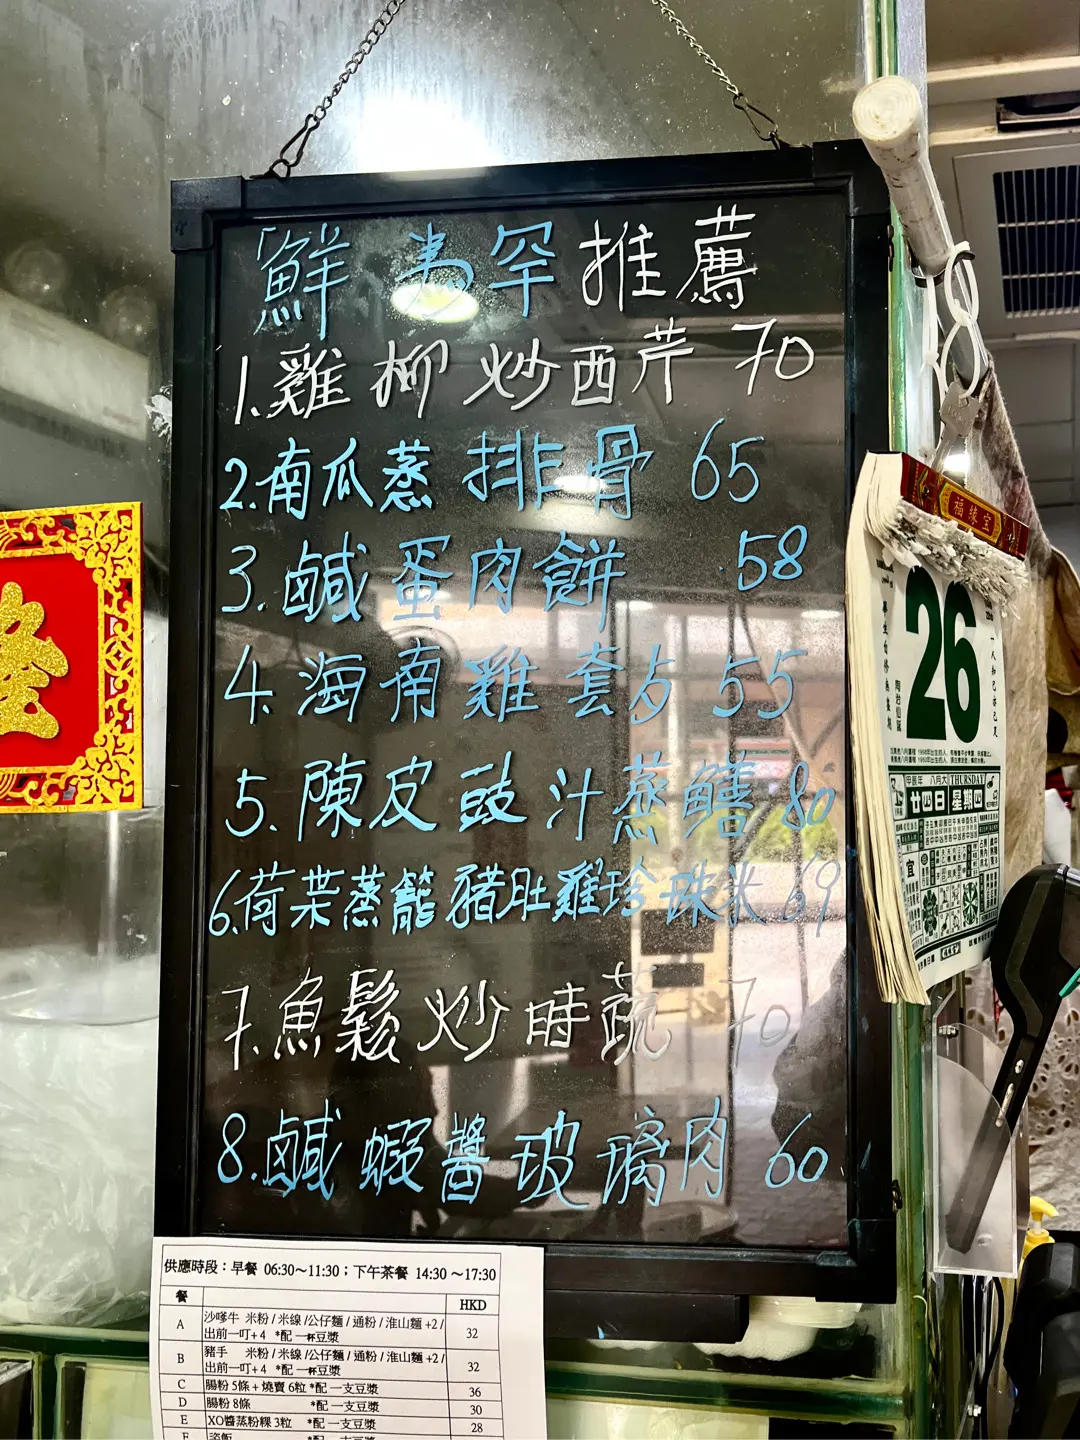 鮮 為 罕 推 薦
1. 雞 柳 炒 西 芹 70
2. 南 瓜 蒸 排 骨 65
3. 鹹 蛋 肉 餅 58
4. 海 南 雞 套 歺 55
5. 陳 皮 豉 汁 蒸 鱔 80
6. 荷 葉 蒸 籠 豬 肚 雞 珍 珠 米 69
7. 魚 鬆 炒 時 蔬 70
8. 鹹 蝦 醬 玻 璃 肉 60
福緣宝
26
甲辰年 八月大 THURSDAY
廿四日 星期四
宜
供應時段：早餐 06:30～11:30；下午茶餐 14:30～17:30
餐 HKD
A 沙嗲牛 米粉 / 米線 /公仔麵 / 通粉 / 淮山麵 +2 /
出前一叮+ 4 *配 一杯豆漿 32
B 豬手 米粉 / 米線 /公仔麵 / 通粉 / 淮山麵 +2 /
出前一叮+ 4 *配 一杯豆漿 32
C 腸粉 5條 + 燒賣 6粒 *配 一支豆漿 36
D 腸粉 8條 *配 一支豆漿 30
E XO醬蒸粉粿 3粒 *配 一支豆漿 28